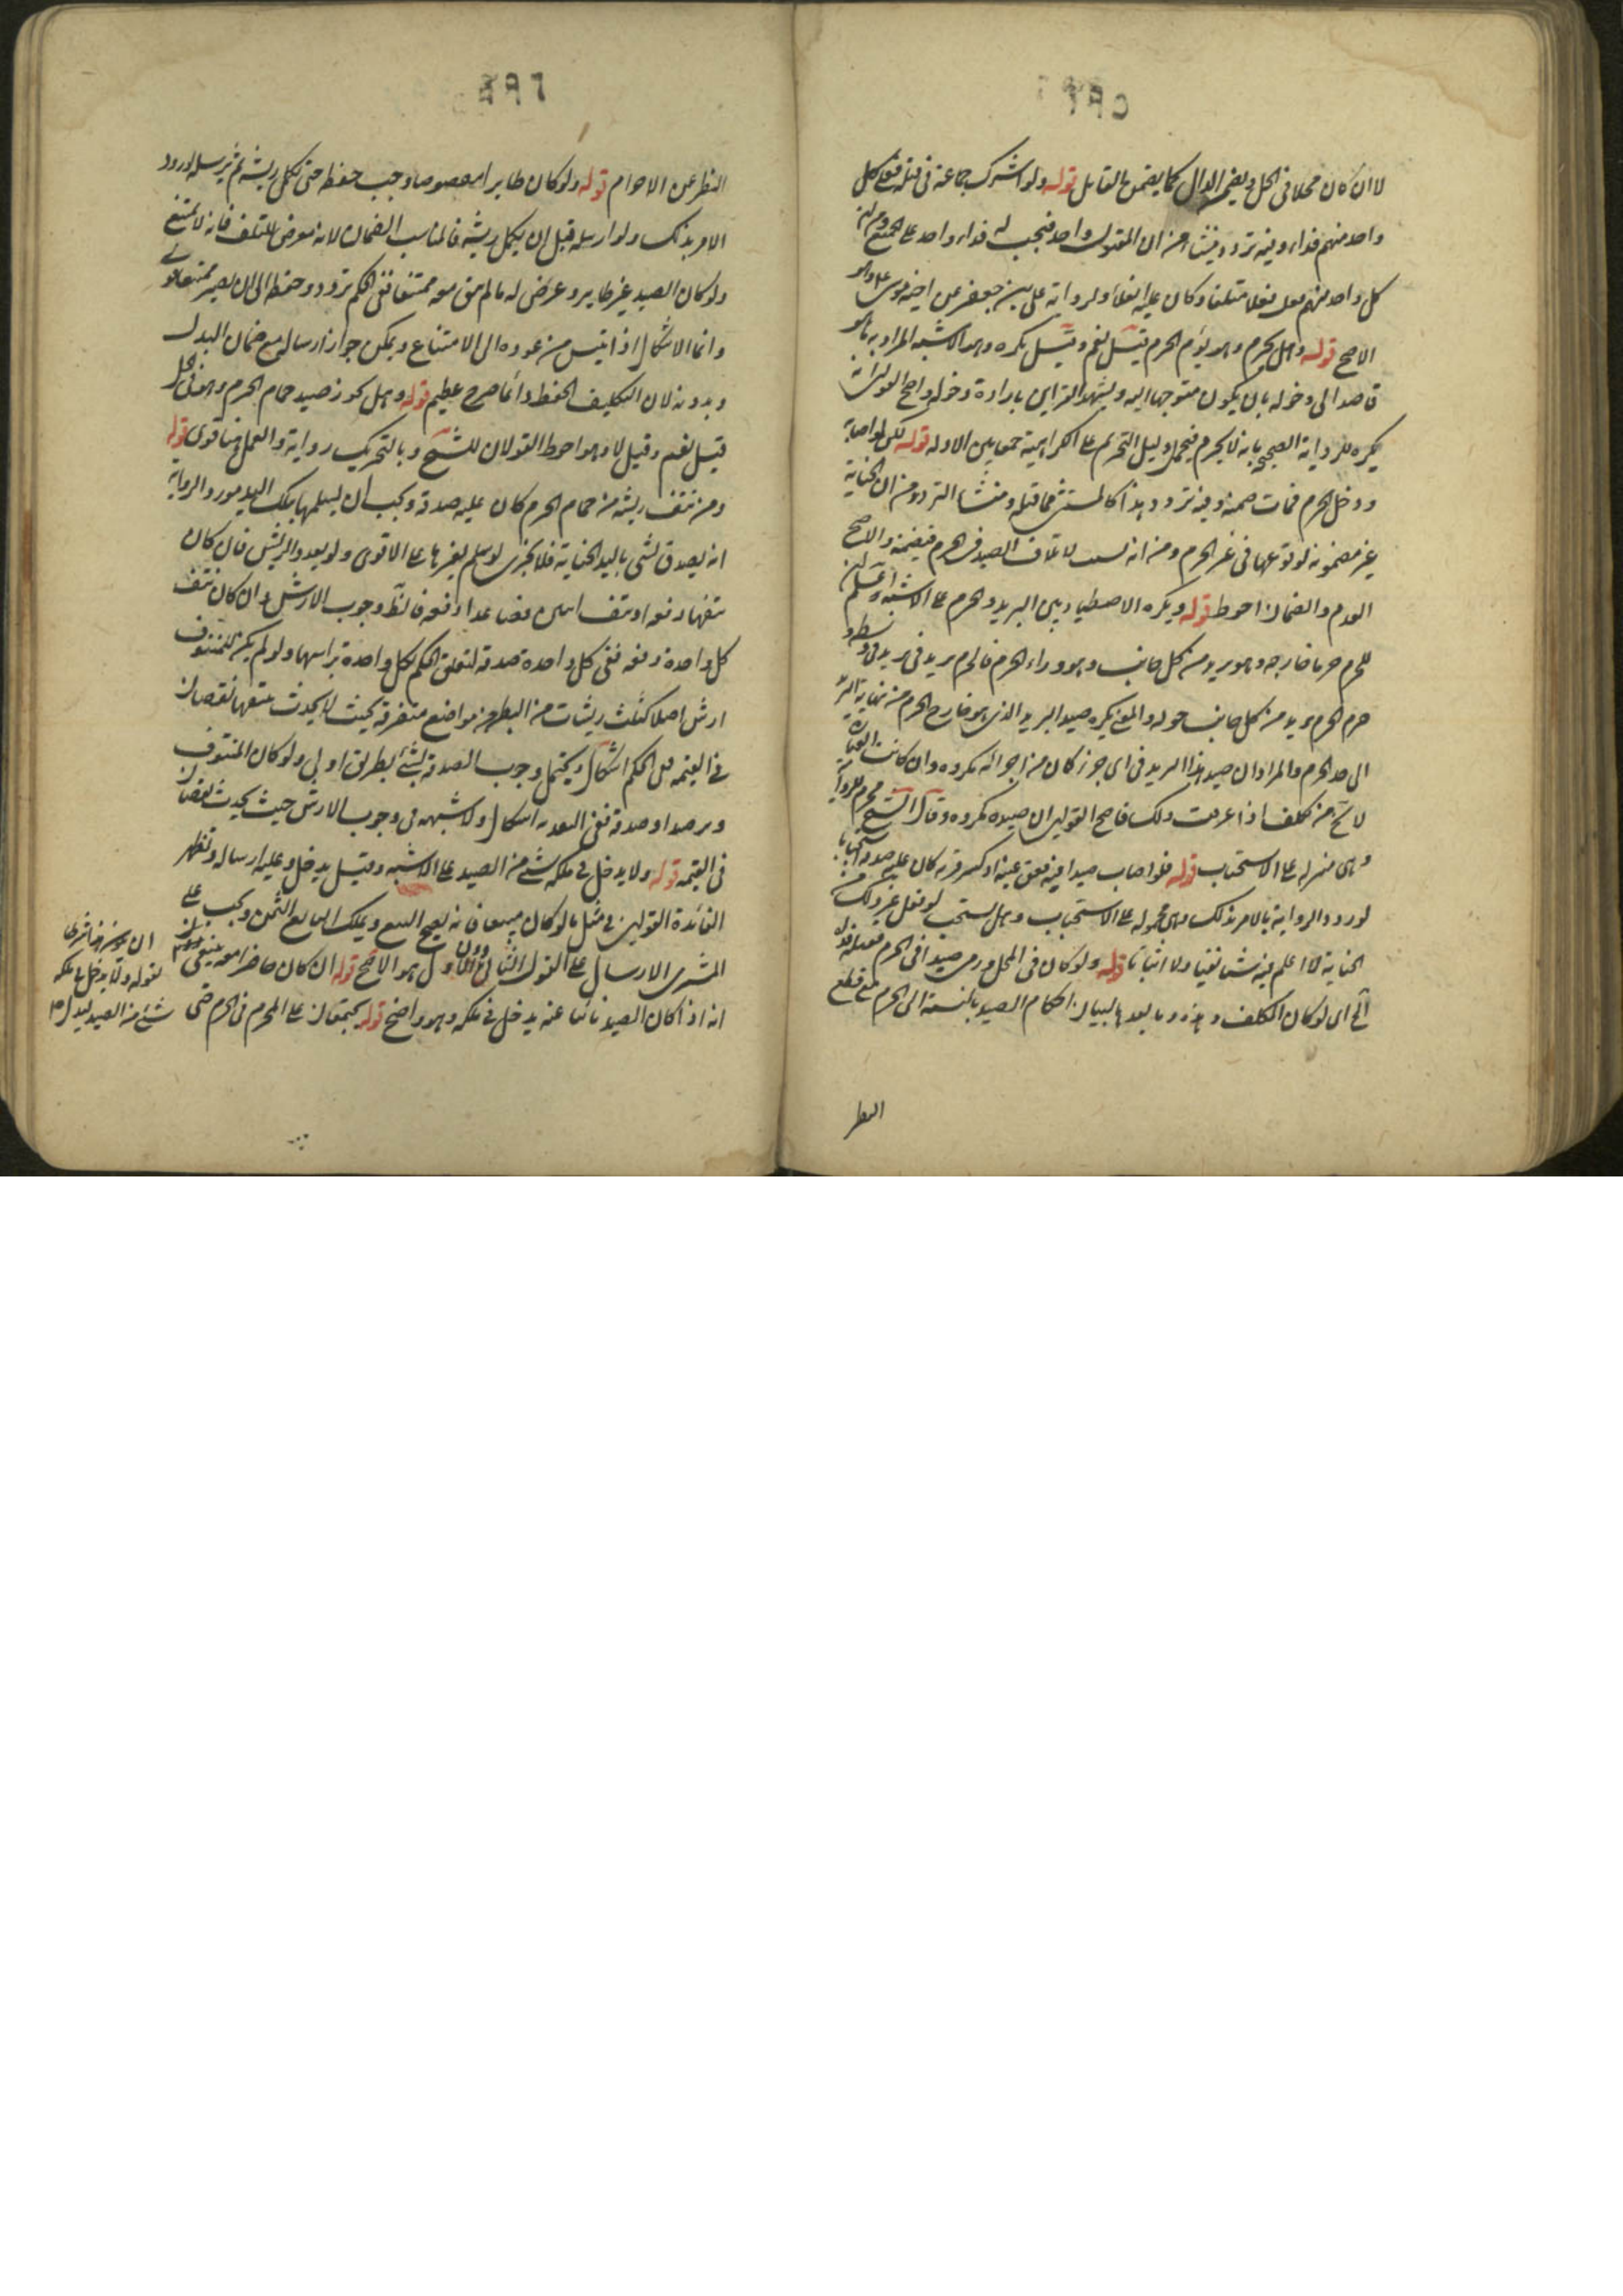 لا ان كان محلا في الحل ويضمن الدال كما يضمن القاتل قوله ولو اشترك جماعة في قتله فعلى كل
واحد منهم فداء وفيه تردد ينشأ من ان المقتول واحد فيجب له فداء واحد على الجميع ومن ان
كل واحد منهم فعل فعلا متلفا وكان عليه الفداء ولرواية علي بن جعفر عن اخيه موسى ع وهو
الاصح قوله وهل يحرم وهو يؤم الحرم قيل نعم وقيل يكره وهو الاشبه المراد به ما هو
قاصد الى دخوله بان يكون متوجها اليه ويشهد القراين بارادة دخوله واصح القولين انه
يكره للرواية الصحيحة بانه لا يحرم فيحمل دليل التحريم على الكراهية جمعا بين الادلة قوله لكن لو اصابه
ودخل الحرم فمات ضمنه وفيه تردد هذا كالمستثنى مما قبله ومنشأ التردد من ان الجناية
غير مضمونة لوقوعها في غير الحرم ومن انه سبب لاتلاف الصيد في الحرم فيضمنه والاصح
العدم والضمان احوط قوله ويكره الاصطياد بين البريد والحرم على الاشبه اعلم ان
للحرم حرما خارجه وهو بريد من كل جانب وهو وراء الحرم فالحرم بريد في بريد
حرم الحرم بريد من كل جانب حوله والمعنى يكره صيد البريد الذي هو خارج الحرم من نهاية البريد
الى حد الحرم والمراد ان صيد هذا البريد في اي جزء كان من اجزائه مكروه وان كانت العبارة
لا تخ من تكلف اذا عرفت ذلك فاصح القولين ان صيده مكروه وقال الشيخ يحرم للرواية
وهي منزلة على الاستحباب قوله فلو اصاب صيدا فيه ففقأ عينه او كسر قرنه كان عليه صدقة استحبابا
لورود الرواية بالامر بذلك وهي محمولة على الاستحباب وهل يستحب لو فعل غير ذلك من
الجناية لا اعلم فيه شيئا نفيا ولا اثباتا قوله ولو كان في الحل ورمى صيدا في الحرم فقتله فداه
الخ اي لو كان المكلف وهذه وما بعدها لبيان احكام الصيد بالنسبة الى الحرم مع قطع
النظر
النظر عن الاحرام قوله ولو كان طايرا مقصوصا وجب حفظه حتى يكمل ريشه ثم يرسله لورود
الامر بذلك ولو ارسله قبل ان يكمل ريشه فالمناسب الضمان لانه معرض للتلف فانه لا يمتنع
ولو كان الصيد غير طاير وعرض له ما لم يبق معه ممتنعا ففي الحكم تردد وحفظه الى ان يصير ممتنعا قوي
وانما الاشكال اذا ايس من عوده الى الامتناع ويمكن جواز ارساله مع ضمان البدل
وبدونه لان التكليف بالحفظ دائما حرج عظيم قوله وهل يجوز صيد حمام الحرم وهو في الحل
قيل نعم وقيل لا وهو احوط القولان للشيخ وبالتحريم رواية والعمل بها قوي قوله
ومن نتف ريشة من حمام الحرم كان عليه صدقة ويجب ان يسلمها بتلك اليد مورد الرواية
انه يصدق بشي باليد الجانية فلا يجزي لو سلم بغيرها على الاقوى ولو تعدد الريش فان كان
نتفها دفعة او نتف اثنين فصاعدا دفعة فالظ وجوب الارش وان كان نتف
كل واحدة دفعة ففي كل واحدة صدقة لتعلق الحكم بكل واحدة براسها ولو لم يكن للمنتوف
ارش اصلا كثلث ريشات من البطن في مواضع متفرقة بحيث لا يحدث بنتفها نقصان
في القيمة ففي الحكم اشكال ويحتمل وجوب الصدقة بشئ بطريق اولى ولو كان المنتوف
في القيمة قوله ولا يدخل في ملكه شئ من الصيد على الاشبه وقيل يدخل وعليه ارساله وتظهر
الفائدة القولين في مثل ما لو كان مبيعا فانه يصح البيع ويملك البايع الثمن ويجب على
المشتري الارسال على القول الثاني دون الاول والاول هو الاصح قوله ان كان حاضرا معه
انه اذا كان الصيد نائيا عنه يدخل في ملكه وهو واضح قوله يجتمعان على المحرم في الحرم حتى
لقوله ولا يدخل في ملكه
شئ من الصيد